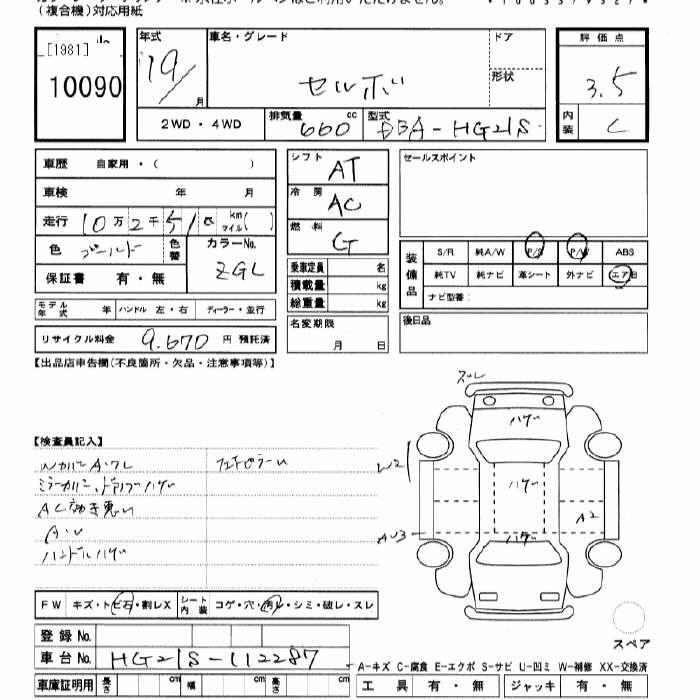 (複合機)対応用紙
[1981]
10090
年式 19/ 月
車名・グレード セルボ
ドア
形状
評価点 3.5
内装 C
2WD・4WD
排気量 660 cc
型式 DBA-HG21S
車歴 自家用・( )
車検 年 月
走行 10万2千 km マイル( )
色 ゴールド 色替
カラーNo. ZGL
保証書 有・無
モデル年式 年 ハンドル 左・右 ディーラー・並行
リサイクル料金 9.670 円 預託済
シフト AT
冷房 AC
燃料 G
乗車定員 名
積載量 kg
総重量 kg
名変期限 月 日
セールスポイント
装備品
S/R 純A/W P/S P/W ABS
純TV 純ナビ 革シート 外ナビ エアB
ナビ型番:
後日品
【出品店申告欄(不良箇所・欠品・注意事項等)】
【検査員記入】
ミラーカバー、ドアノブハゲ
AC効き悪い
ハンドルハゲ
ズレ
ハゲ
ハゲ
ハゲ
W2
A2
FW キズ・トビ石・割レX
シート内装 コゲ・穴・汚レ・シミ・破レ・スレ
スペア
登録No.
車台No. HG21S-112287
A-キズ C-腐食 E-エクボ S-サビ U-凹ミ W-補修 XX-交換済
車庫証明用 長さ cm 幅 cm 高さ cm
工具 有・無 ジャッキ 有・無